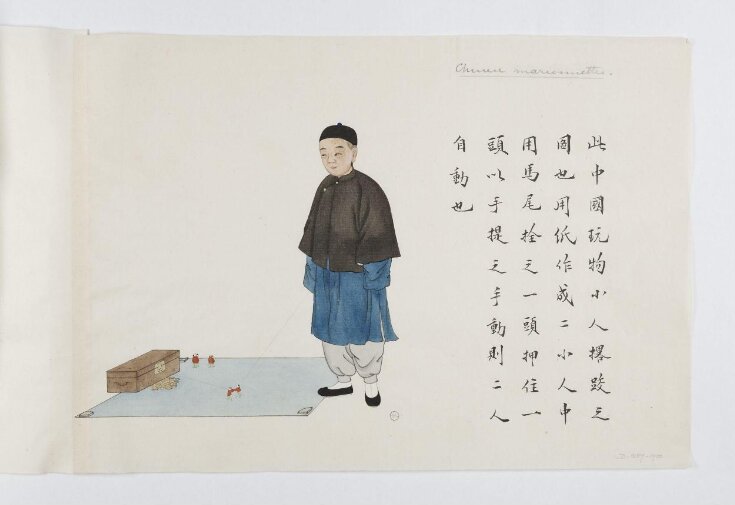 Chinese marionettes.
此中國玩物小人撂跤之
圖也用紙作成二小人中
用馬尾拴之一頭押住一
頭以手提之手動則二人
自動也